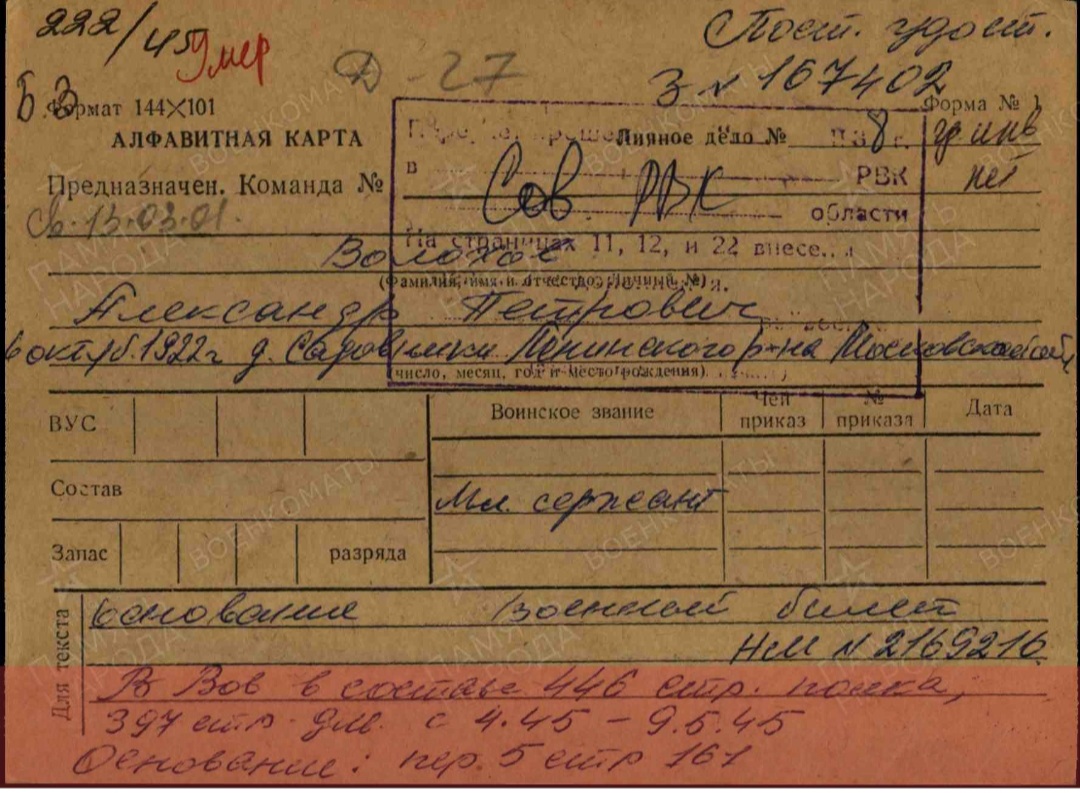 222/45 Умер
Пост. удост.
Д-27
З № 167402
Б.З
Формат 144×101
Форма № 1
АЛФАВИТНАЯ КАРТА
Личное дело №
гр. инв
нет
Предназначен. Команда №
в Сов РВК РВК
Св. 13.03.01.
области
На страницах 11, 12, и 22 внесе
Волохов
(Фамилия, имя и отчество, Личный №)
Александр Петрович
6 октяб. 1922г д. Ленинского р-на Московской
число, месяц, год и место рождения)
ВУС
Воинское звание
Чей приказ
№ приказа
Дата
Состав
Мл. сержант
Запас
разряда
Для текста
Основание военный билет
НМ № 2169216
В Вов в составе 446 стр. полка,
397 стр. див. с 4.45 – 9.5.45
Основание: пер. 5 стр 161
ПАМЯТЬ НАРОДА
ВОЕНКОМАТЫ